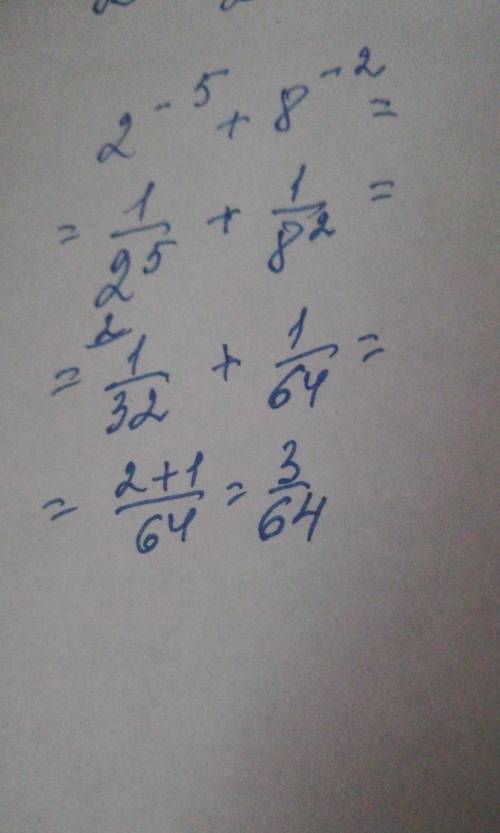 2^-5 + 8^-2 =
= 1/2^5 + 1/8^2 =
= 2 1/32 + 1/64 =
= 2+1/64 = 3/64